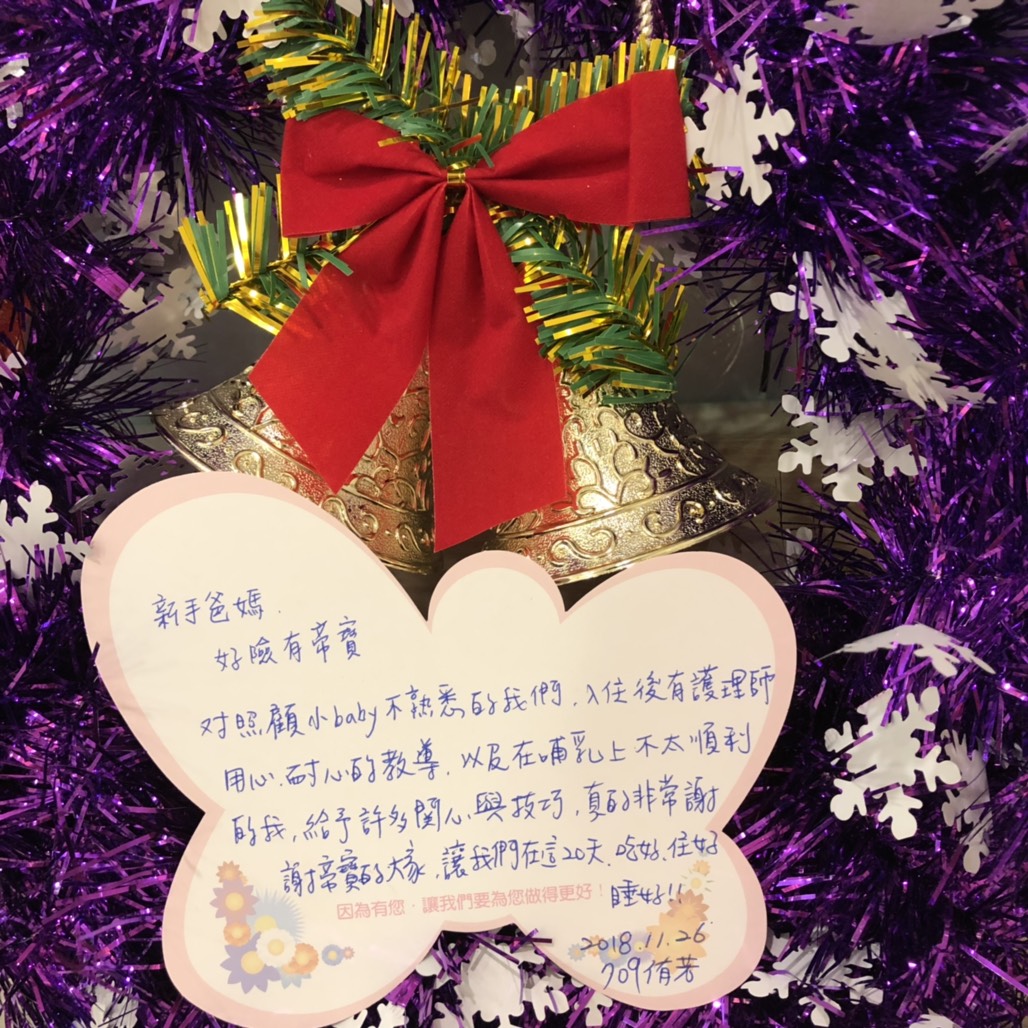 新手爸媽.
好險有帝寶
對照顧小baby不熟悉的我們，入住後有護理師
用心、耐心的教導，以及在哺乳上不太順利
的我，給予許多關心與技巧，真的非常謝
謝帝寶的大家，讓我們在這20天、吃好、住好
因為有您，讓我們要為您做得更好！
睡好!!
2018.11.26
709侑若